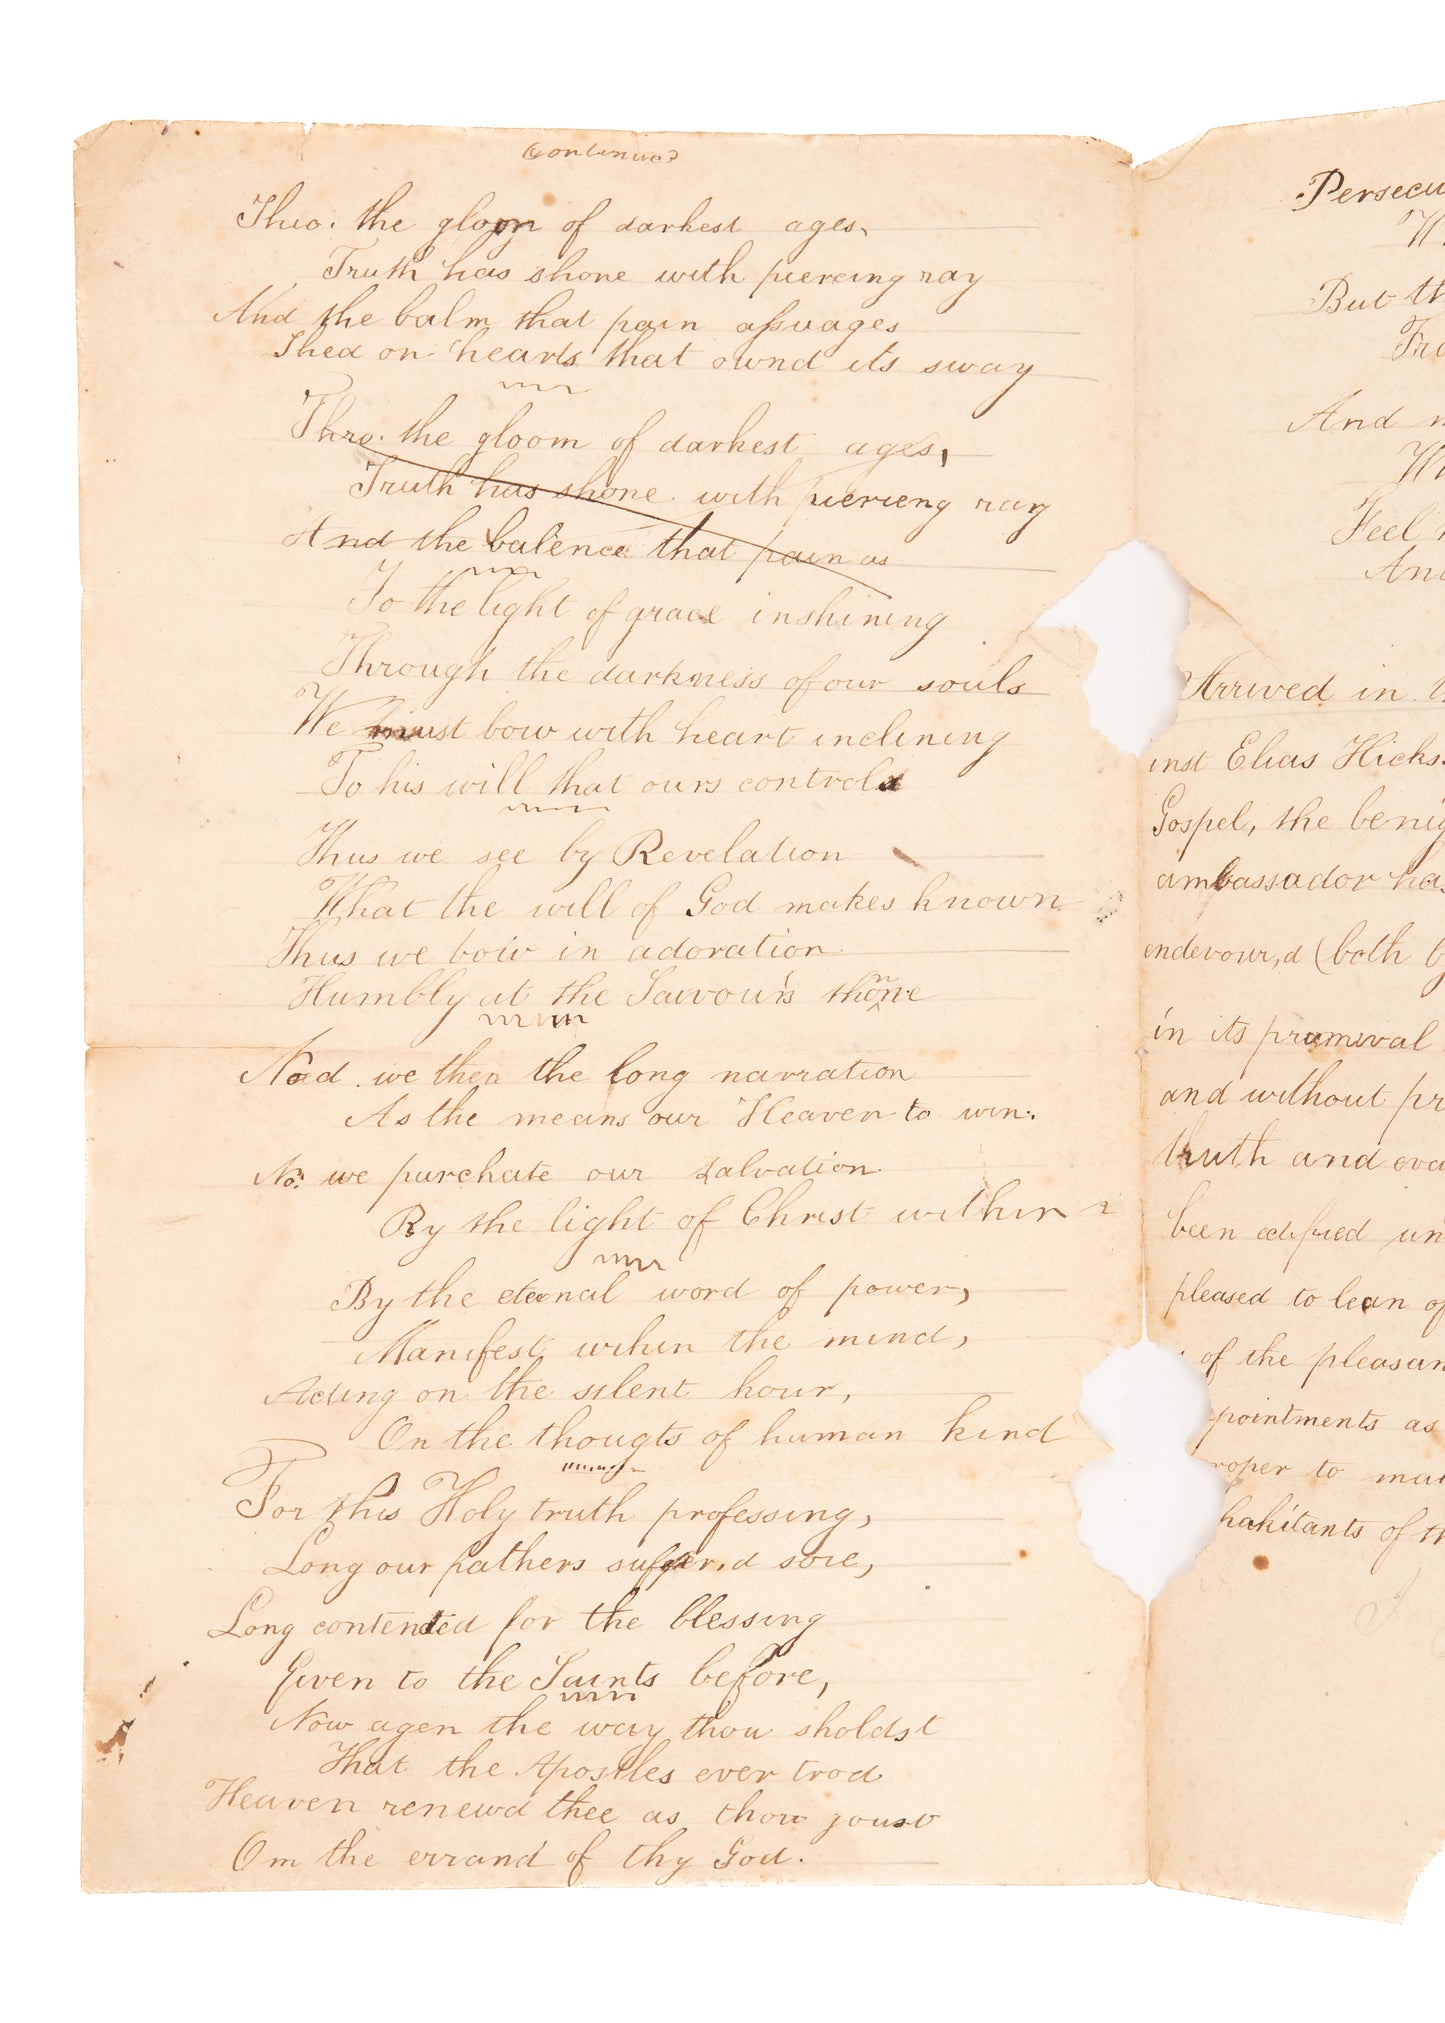 Continued
Thro. the gloom of darkest ages,
Truth has shone with piercing ray
And the balm that pain assuages
Shed on hearts that ownd its sway
Thro. the gloom of darkest ages,
Truth has shone with piercing ray
And the balence that pain as
To the light of grace inshining
Through the darkness of our souls
We must bow with heart inclining
To his will that ours controls
Thus we see by Revelation
What the will of God makes known
Thus we bow in adoration
Humbly at the Saviour's throne
Need we then the long narration
As the means our Heaven to win.
No. we purchase our salvation
By the light of Christ within
By the eternal word of power,
Manifest wihin the mind,
Acting on the silent hour,
On the thougts of human kind
For this Holy truth professing,
Long our fathers suffer,d sore,
Long contented for the blessing
Given to the Saints before,
Now agen the way thou sholdst
That the Apostles ever trod
Heaven renewd thee as thou
On the errand of thy God.
Persecu
But th
And
Feel
And
Arrived in
inst Elias Hicks.
Gospel, the benig
ambassador has
endevour,d (both b
in its primival
and without pr
truth and eva
been edified un
pleased to lean of
of the pleasan
pointments as
roper to mak
habitants of th